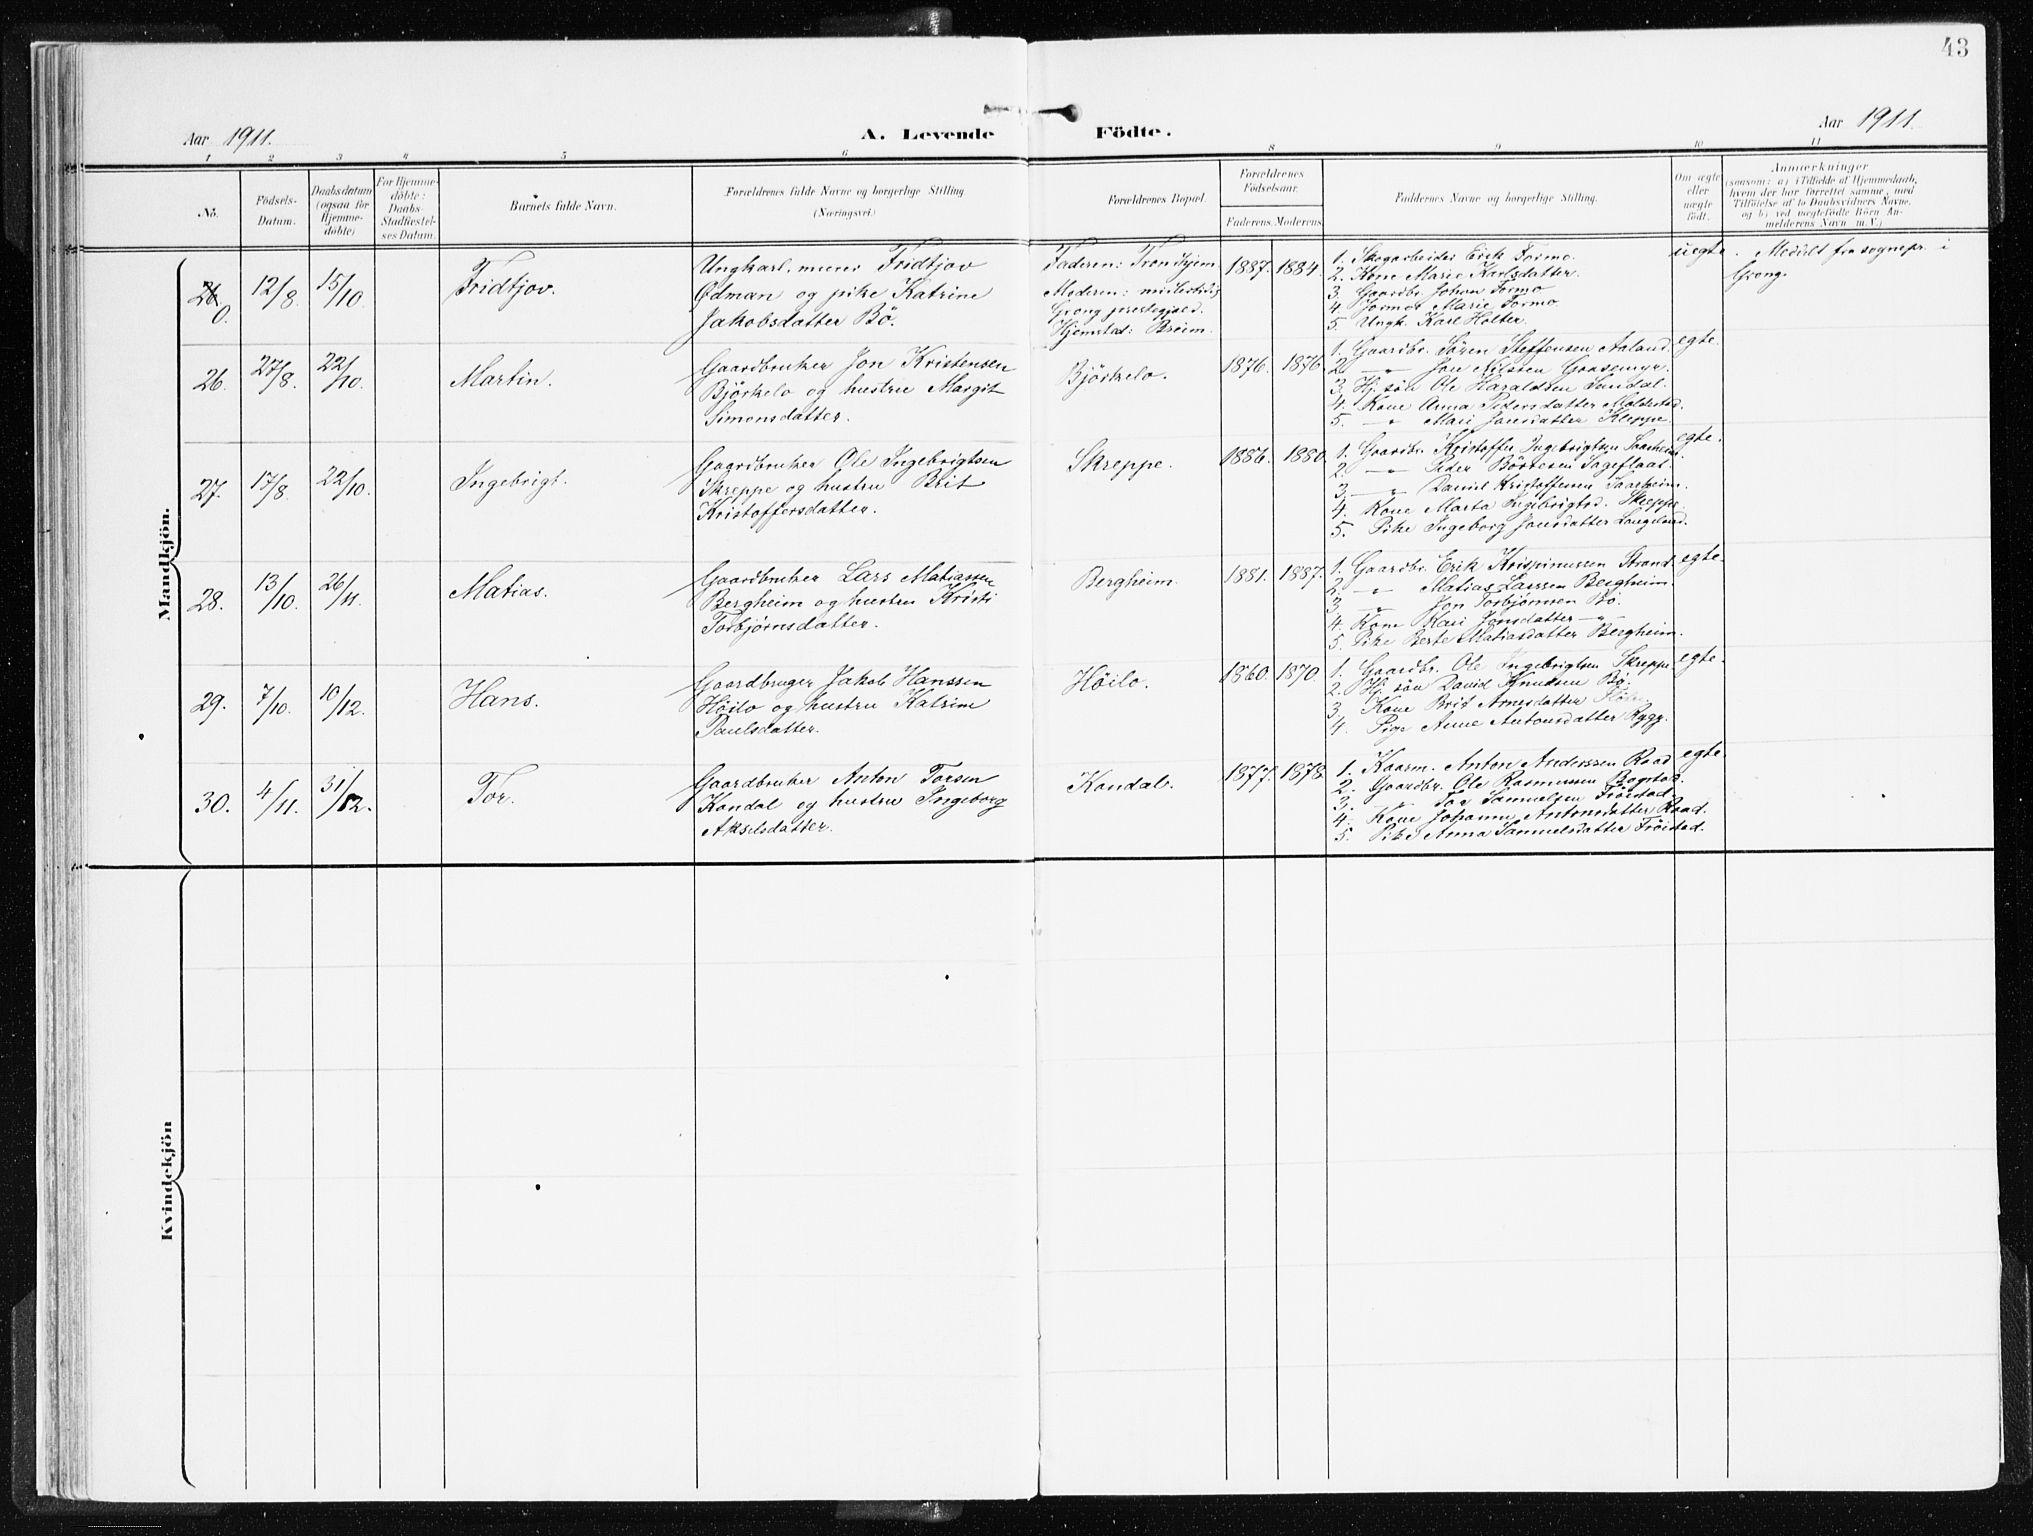 43
Aar 1911.
A. Levende Födte.
Aar 1911.
1 2 3 4 5 6 8 9 10 11
No.
Födsels-Datum.
Daabsdatum (ogsaa for Hjemme-döbte)
For Hjemme-döbte: Daabs-Stadfæstel-ses Datum.
Barnets fulde Navn.
Forældrenes fulde Navne og borgerlige Stilling
(Næringsvei.)
Forældrenes Bopæl.
Forældrenes Födselsaar.
Faderens. Moderens.
Faddernes Navne og borgerlige Stilling.
Om ægte eller uægte födt.
Anmærkninger
(saasom: a) i Tilfælde af Hjemmedaab,
hvem der har forrettet samme, med
Tilföielse af to Daabsvidners Navne,
og b) ved uægtefödte Börn An-
melderens Navn m. V.)
Mandkjön.
26 0. 12/8. 15/10. Fridtjov.
Ungkarl, murer Fridtjov
Ødman og pike Katrine
Jakobsdatter Bö.
Faderen: Trondhjem
Moderen: midlertidig
Grong prestegjæld.
Hjemsted: Breim.
1887. 1884.
1. Skogarbeider Erik Formo.
2. Kone Marie Karlsdatter.
3. Gaardbr. Johan Formo
4. Jormor Marie Formo
5. Ungk. Karl Holter.
uegte.
Meddelt fra sognepr. i
Grong.
26. 27/8. 22/10. Martin.
Gaardbruker Jon Kristensen
Björkelo og hustru Margit
Simonsdatter.
Björkelo.
1876. 1876.
1. Gaardbr. Sören Steffensen Aaland.
2. -"- Jon Nilssen Gaasemyr.
3. Hj. søn Ole Haraldsen Sandal.
4. Kone Anna Pedersdatter Moldestad.
5. -"- Mari Jonsdatter Kleppe.
egte.
27. 17/8. 22/10. Ingebrigt.
Gaardbruker Ole Ingebrigtsen
Skreppe og hustru Brit
Kristoffersdatter.
Skreppe.
1886. 1880.
1. Gaardbr. Kristoffer Ingebrigtsen Saarheim.
2. -"- Peder Börtesen Sageflaat.
3. -"- Daniel Kristoffersen Saarheim.
4. Kone Marta Ingebrigtsd. Skreppe.
5. Pike Ingeborg Jonsdatter
egte.
28. 13/10. 26/11. Matias.
Gaardbruker Lars Matiassen
Bergheim og hustru Kristi
Torbjørnsdatter.
Bergheim.
1881. 1887.
1. Gaardbr. Erik Krispinussen Strand.
2. -"- Matias Larssen Bergheim.
3. -"- Jon Torbjørnsen Bö.
4. Kone Kari Jonsdatter -"-
5. Pike Berte Matiasdatter Bergheim.
egte.
29. 7/10. 10/12. Hans.
Gaardbruger Jakob Hanssen
Höilo og hustru Katrine
Paulsdatter.
Höilo.
1860. 1870.
1. Gaardbr. Ole Ingebrigtsen Skreppe
2. Hj. søn David Knudsen Bö.
3. Kone Brit Arnesdatter Höilo
4. Pige Anne Antonsdatter Rygg.
egte.
30. 4/11. 31/12. Tor.
Gaardbruker Anton Torsen
Kandal og hustru Ingeborg
Akselsdatter.
Kandal.
1877. 1878.
1. Kaarm. Anton Anderssen Raad
2. Gaardbr. Ole Rasmussen Bogstad.
3. -"- Tor Samuelsen Fröistad.
4. Kone Johanne Antonsdatter Raad.
5. Pike Anna Samuelsdatter Fröistad.
egte.
Kvindekjön